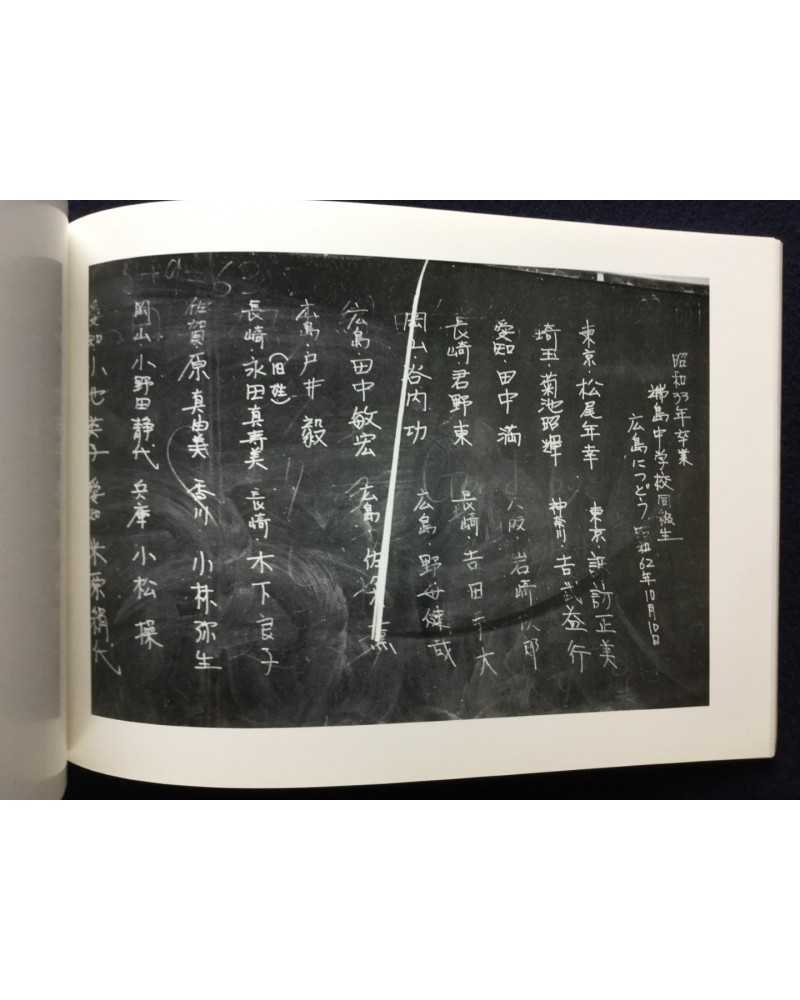 昭和33年卒業
端島中学校同級生
広島につどう 昭和62年10月10日
東京・松尾年幸 東京・諏訪正美
埼玉・菊池昭輝 神奈川・吉武益行
愛知 田中 満 大阪・岩崎 郎
長崎 君野東 長崎・吉田 大
岡山 谷内 功 広島 野母健
広島・田中敏宏 広島 佐 薫
広島・戸井 毅
(旧姓)
長崎・永田真寿美 長崎 木下良子
佐賀 原 真由美 香川 小林弥生
岡山 小野田静代 兵庫 小松 操
愛知 小 英子 愛知 米原絹代